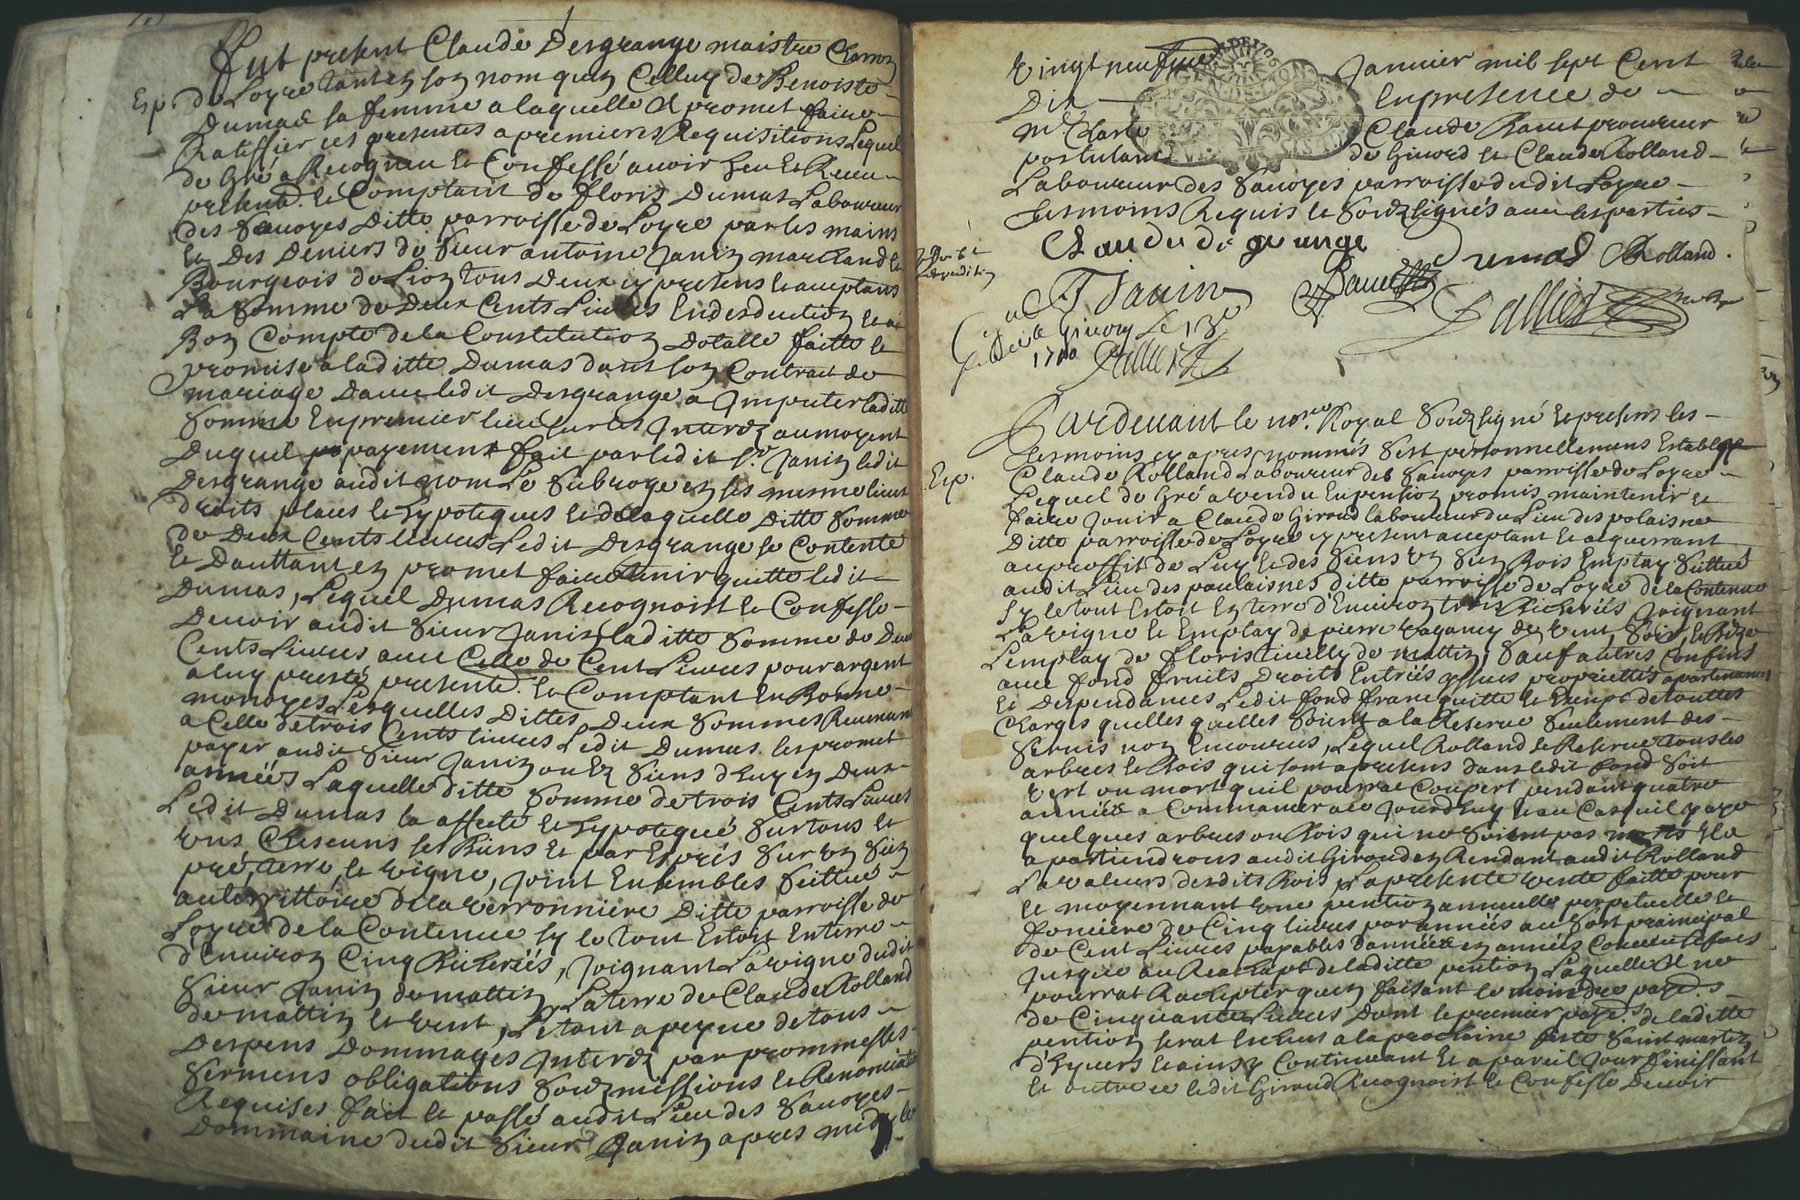 Fut present Claude Desgrange maistre Charron
Exp. de Loyre tant en son nom quen Celluy de Benoiste
Dumas sa femme a laquelle Il promet faire
Ratiffier ces presentes a premieres Requisitions Lequel
de Gré a Recogneu et Confessé avoir heu et Receu
presente.t et Comptant de Floris Dumas Laboureur
des Sauoyes Ditte parroisse de Loyre par les mains
et Des Deniers de Sieur antoine Janin marchand et
Bourgeois de Lion tous Deux cy presens et acceptans
La Somme de Deux Cents Liures En desduction et a
Bon Compte de la Constitution Dotalle faitte et
promise a laditte Dumas dans son Contrait de
mariage Dauec ledit Desgrange a Imputer laditte
Somme En premier lieu sur les Interetz au moyent
Duquel payement fait par ledit Sr. Janin ledit
Desgrange audit nom Le Subroge en ses mesme lieux
droits places et hypoteques et de laquelle Ditte Somme
de Deux Cents liures Ledit Desgrange se Contente
et Dauttant en promet faire tenir quitte ledit
Dumas, Lequel Dumas Recognoist et Confesse
Deuoir audit Sieur Janin laditte Somme de Deux
Cents Liures auec Celle de Cent Liures pour argent
a luy presté presente.t et Comptant En Bonne
monoyes Lesquelles Dittes Deux Sommes Reuenant
a Celle de trois Cents liures Ledit Dumas les promet
payer audit Sieur Janin ou Es Siens dhuy en Deux
années Laquelle ditte Somme de trois Cents Liures
Ledit Dumas la affecté et hypotequé Sur tous et
Uns Chescuns ses Biens et par Exprés Sur un Sien
pré, terre, et vigne, Joint Ensembles Scittue
au territtoire de la verronniere Ditte parroisse de
Loyre de la Contenue Sy le tout Estoit En terre
d'Enuiron Cinq Bicheriés, Joignant La vigne dudit
Sieur Janin de mattin La terre de Claude Rolland
de mattin et vent, Le tout a peyne de tous
Despens Dommages Interetz par prommesses
Sermens obligations Soubzmissions et Renonciation
Requises fait et passé audit Lieu des Sauoyes
Dommaine dudit Sieur Janin apres midy le
vingt neufieme Januier mil sept Cent
Dix En presence de
Me Charle Claude Rauet procureur
postulant de Giuord et Claude Rolland
Laboureur des Sauoyes parroisse dudit Loyre
tesmoins Requis et Soubzsignés auec les parties
Claude de grange Dumas CRolland.
expedition
Janin Rauet
Giuors Le 13e
1710
Pardeuant le nore. Royal Soubzsigné et presens les
tesmoins cy apres nommés Sest personnellement Establyt
Exp. Claude Rolland Laboureur des Sauoyes parroisse de Loyre
Lequel de Gré a vendu En pension promis maintenir et
faire Jouir a Claude Giroud laboureur du Lieu des polaisne
Ditte parroisse de Loyre cy present acceptant et acquerrant
au proffit de Luy et des Siens un Sien Bois Emplay Scittué
audit Lieu des paulaisnes ditte parroisse de Loyre de la Contenue
Sy le tout Estoit En terre d'Enuiron trois Bicheriés Joignant
La vigne et Emplay de pierre vaganey de vent, Soir, et Bize
Lemplay de Floris tiuilly de mattin, Sauf autres Confins
auec fond fruits Droits Entriés Issues proprietes apartenances
et Despendances Ledit fond franc quitte et Exempt de touttes
Charges quelles quelles Soient a la Reserue Seulement des
Seruis non Encourus, Lequel Rolland se Reserue tous les
arbres et Bois qui sont a presens dans ledit fond Soit
vert ou mort quil pourrat Coupert pendant quatre
année a Commancer de Jourdhuy et au Cas quil y aye
quelques arbres ou Bois qui ne Soient pas morts Ils
apartiendrons audit Giroud en Rendant audit Rolland
La valeurs desdits Bois, La presente vente faitte pour
et moyennant une pention annuelle perpetuelle et
fonciere de Cinq liures par années au Sort prainçipal
de Cent Liures payables d'années en années
Jusque au Reachapt de laditte pention Laquelle Il ne
pourrat Rachepter quen faisant le moindre paye.t
de Cinquante Liures Dont le premier paye.t de laditte
pention serat Escheu a la prochaine feste Saint martin
d'hyuers et ainsy Continuant et a pareil Jour Finissant
et outre ce ledit Giroud Recognoist et Confesse Deuoir